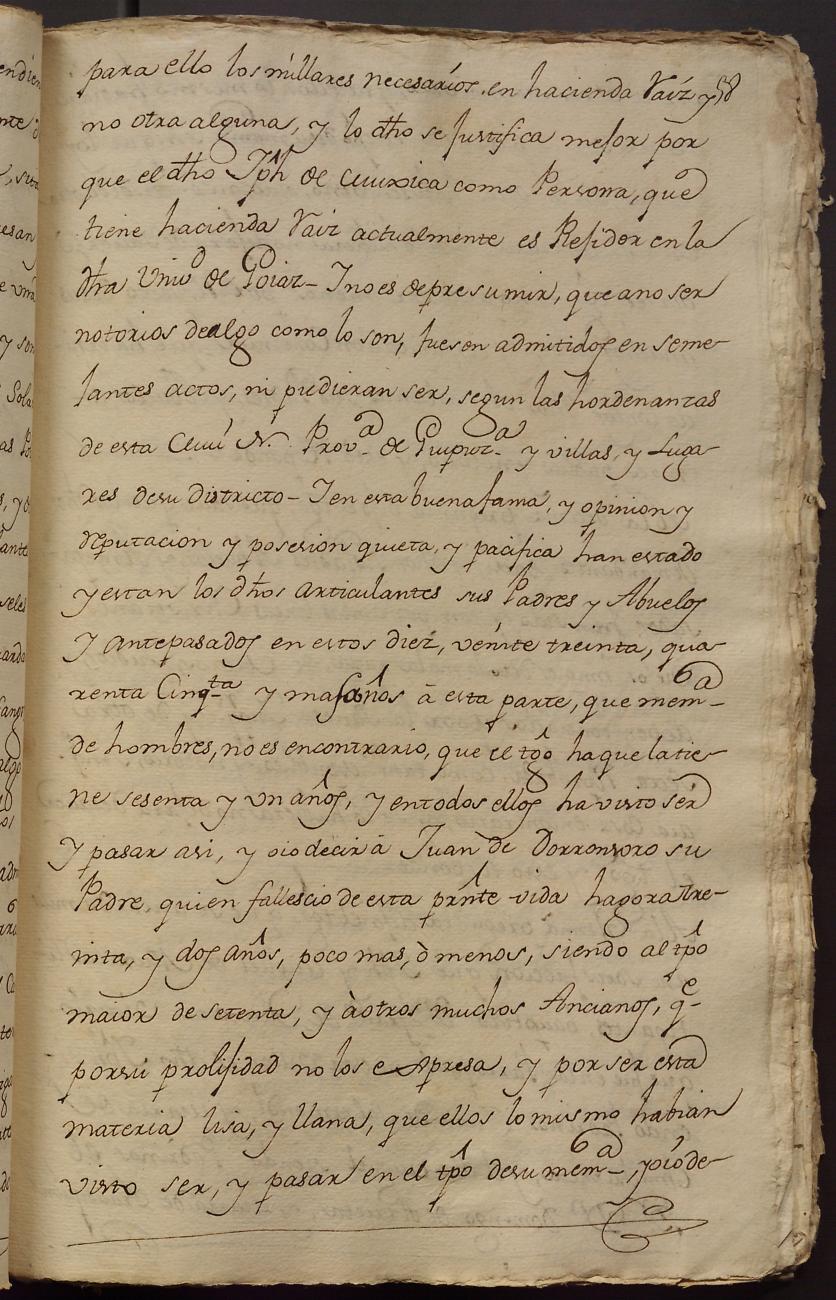 para ello los millares necesarios, en hacienda Vaiz y 58
no otra alguna, y lo dho se Justifica mejor por
que el dho Jph de como Persona, que
tiene hacienda Vaiz actualmente es Rejidor en la
dha Univd de Goiaz - I no es de presumir, que a no ser
notorios dealgo como lo son, fuesen admitidos en seme-
jantes actos, ni pudieran ser, segun las hordenanzas
de esta N. Prova. de Guipuza. y villas, y Luga-
res de su districto - I en esta buena fama, y opinion y
deputacion y posesion quieta, y pacifica han estado
y estan los dhos articulantes sus Padres y Abuelos
y antepasados en estos diez, veinte treinta, qua-
renta Cinqta y mas años à esta parte, que mema-
de hombres, no es encontrario, que el tgo ha que la tie-
ne sesenta y un años, y en todos ellos ha visto ser
y pasar asi, y oio decir à Juan de Dorronsoro su
Padre, quien fallescio de esta prnte vida hagora tre-
inta, y dos años, poco mas, ò menos, siendo al tpo
maior de setenta, y à otros muchos Ancianos, qe-
por su prolijidad no los expresa, y por ser esta
materia lisa, y llana, que ellos lo mismo habian
visto ser, y pasar en el tpo de su mema-, y oio de-